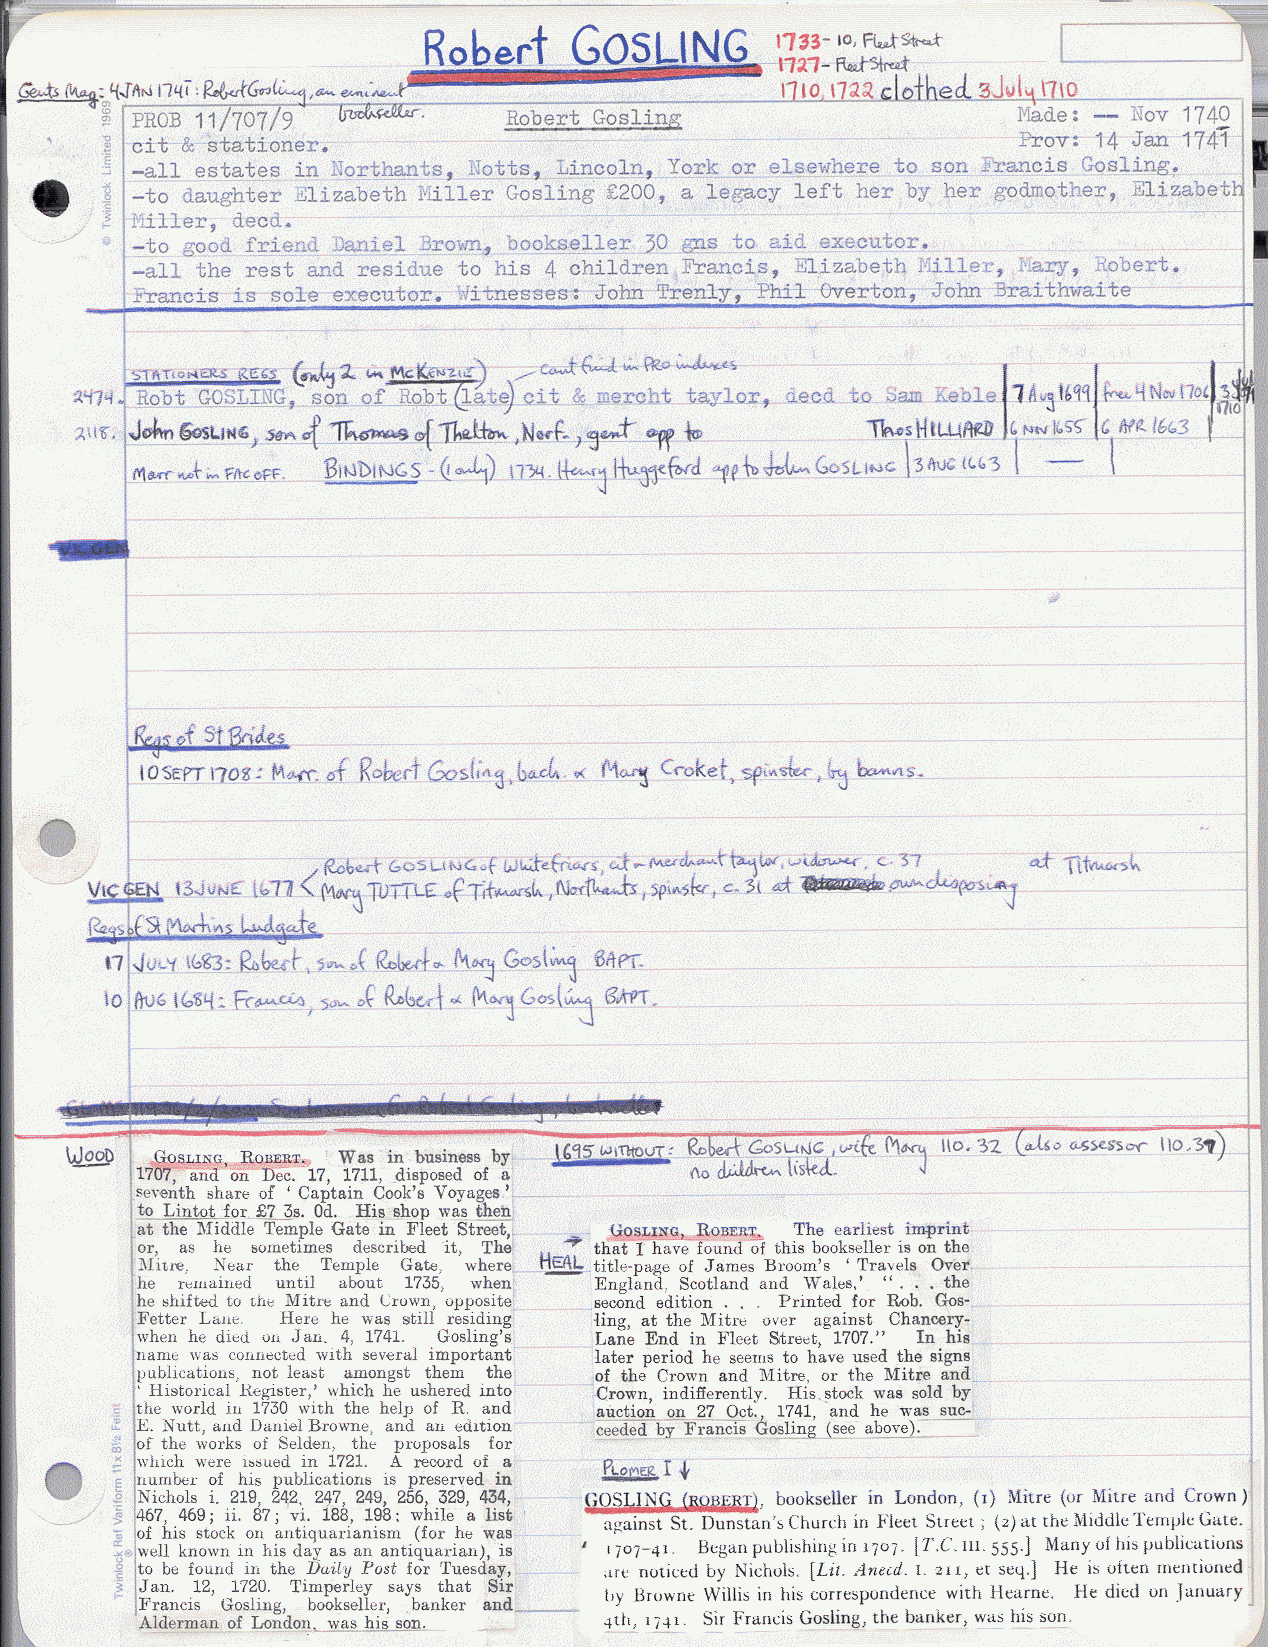 Robert GOSLING
1733- 10, Fleet Street
1727- Fleet Street
1710, 1722 clothed 3 July 1710
Gents Mag: 4 JAN 1741: Robert Gosling, an eminent bookseller.
PROB 11/707/9 Robert Gosling Made: -- Nov 1740
cit & stationer. Prov: 14 Jan 1741
-all estates in Northants, Notts, Lincoln, York or elsewhere to son Francis Gosling.
-to daughter Elizabeth Miller Gosling £200, a legacy left her by her godmother, Elizabeth
Miller, decd.
-to good friend Daniel Brown, bookseller 30 gns to aid executor.
-all the rest and residue to his 4 children Francis, Elizabeth Miller, Mary, Robert.
Francis is sole executor. Witnesses: John Trenly, Phil Overton, John Braithwaite
STATIONERS REGS (only 2 in McKENZIE) Cant find in PRO indexes
2474. Robt GOSLING, son of Robt (late) cit & mercht taylor, decd to Sam Keble 7 Aug 1699 free 4 Nov 1706 3 July 1710
2118. John GOSLING, son of Thomas of Thelton, Norf., gent app to Thos HILLIARD 6 Nov 1655 6 APR 1663
Marr not in FAC OFF. BINDINGS - (1 only) 1734. Henry Huggeford app to John GOSLING 3 AUG 1663 —
VIC GEN
Regs of St Brides
10 SEPT 1708: Marr. of Robert Gosling, bach. & Mary Croket, spinster, by banns.
Robert GOSLING of Whitefriars, cit & merchant taylor, widower, c. 37 at Titmarsh
VIC GEN 13 JUNE 1677 < Mary TUTTLE of Titmarsh, Northants, spinster, c. 31 at own disposing
Regs of St Martins Ludgate
17 JULY 1683: Robert, son of Robert & Mary Gosling BAPT.
10 AUG 1684: Francis, son of Robert & Mary Gosling BAPT.
WOOD
GOSLING, ROBERT. Was in business by
1707, and on Dec. 17, 1711, disposed of a
seventh share of ' Captain Cook's Voyages '
to Lintot for £7 3s. 0d. His shop was then
at the Middle Temple Gate in Fleet Street,
or, as he sometimes described it, The
Mitre, Near the Temple Gate, where
he remained until about 1735, when
he shifted to the Mitre and Crown, opposite
Fetter Lane. Here he was still residing
when he died on Jan. 4, 1741. Gosling's
name was connected with several important
publications, not least amongst them the
' Historical Register,' which he ushered into
the world in 1730 with the help of R. and
E. Nutt, and Daniel Browne, and an edition
of the works of Selden, the proposals for
which were issued in 1721. A record of a
number of his publications is preserved in
Nichols i. 219, 242, 247, 249, 256, 329, 434,
467, 469; ii. 87; vi. 188, 198; while a list
of his stock on antiquarianism (for he was
well known in his day as an antiquarian), is
to be found in the Daily Post for Tuesday,
Jan. 12, 1720. Timperley says that Sir
Francis Gosling, bookseller, banker and
Alderman of London, was his son.
1695 WITHOUT: Robert GOSLING, wife Mary 110. 32 (also assessor 110.37)
no children listed.
HEAL
GOSLING, ROBERT. The earliest imprint
that I have found of this bookseller is on the
title-page of James Broom's ' Travels Over
England, Scotland and Wales,' " . . . the
second edition . . . Printed for Rob. Gos-
ling, at the Mitre over against Chancery-
Lane End in Fleet Street, 1707." In his
later period he seems to have used the signs
of the Crown and Mitre, or the Mitre and
Crown, indifferently. His stock was sold by
auction on 27 Oct., 1741, and he was suc-
ceeded by Francis Gosling (see above).
PLOMER I ↓
GOSLING (ROBERT), bookseller in London, (1) Mitre (or Mitre and Crown)
against St. Dunstan's Church in Fleet Street; (2) at the Middle Temple Gate.
1707-41. Began publishing in 1707. [T.C. III. 555.] Many of his publications
are noticed by Nichols. [Lit. Anecd. I. 211, et seq.] He is often mentioned
by Browne Willis in his correspondence with Hearne. He died on January
4th, 1741. Sir Francis Gosling, the banker, was his son.
© Twinlock Limited 1969
Twinlock Ref Variform 11 x 8½ Feint